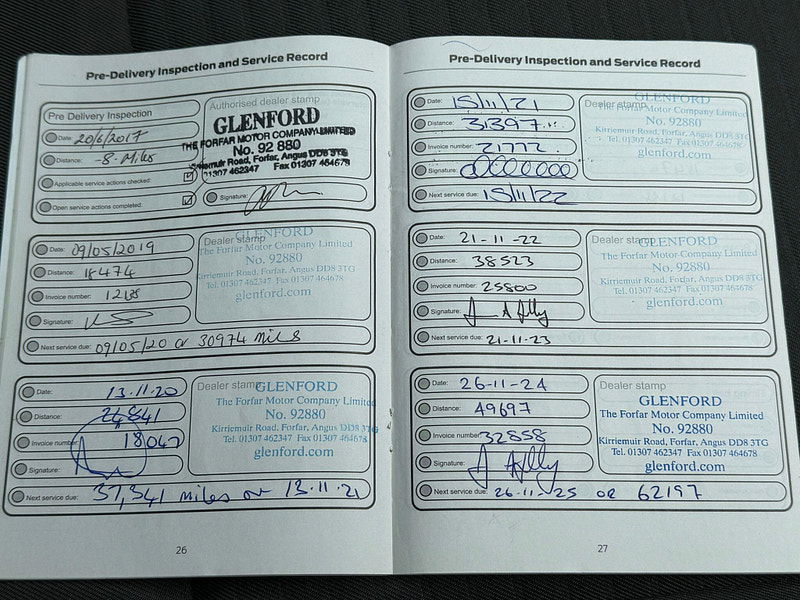 Pre-Delivery Inspection and Service Record
Pre Delivery Inspection
Date: 20/6/2017
Distance: -8- Miles
Applicable service actions checked:
Open service actions completed:
Authorised dealer stamp
GLENFORD
THE FORFAR MOTOR COMPANY LIMITED
No. 92 880
Kirriemuir Road, Forfar, Angus DD8 3TG
01307 462347 Fax 01307 464678
Signature:
Date: 09/05/2019
Distance: 18474
Invoice number:
Signature:
Next service due: 09/05/20 or 30974 miles
Dealer stamp
GLENFORD
The Forfar Motor Company Limited
No. 92880
Kirriemuir Road, Forfar, Angus DD8 3TG
Tel. 01307 462347 Fax 01307 464678
glenford.com
Date: 13.11.20
Distance: 24841
Invoice number: 18047
Signature:
Next service due: 37,341 miles or 13.11.21
Dealer stamp
GLENFORD
The Forfar Motor Company Limited
No. 92880
Kirriemuir Road, Forfar, Angus DD8 3TG
Tel. 01307 462347 Fax 01307 464678
glenford.com
26
Pre-Delivery Inspection and Service Record
Date: 15/11/21
Distance: 31397
Invoice number: 21772
Signature:
Next service due: 15/11/22
Dealer stamp
GLENFORD
The Forfar Motor Company Limited
No. 92880
Kirriemuir Road, Forfar, Angus DD8 3TG
Tel. 01307 462347 Fax 01307 464678
glenford.com
Date: 21-11-22
Distance: 38523
Invoice number: 25800
Signature:
Next service due: 21-11-23
Dealer stamp
GLENFORD
The Forfar Motor Company Limited
No. 92880
Kirriemuir Road, Forfar, Angus DD8 3TG
Tel. 01307 462347 Fax 01307 464678
glenford.com
Date: 26-11-24
Distance: 49697
Invoice number: 32858
Signature:
Next service due: 26-11-25 OR 62197
Dealer stamp
GLENFORD
The Forfar Motor Company Limited
No. 92880
Kirriemuir Road, Forfar, Angus DD8 3TG
Tel. 01307 462347 Fax 01307 464678
glenford.com
27